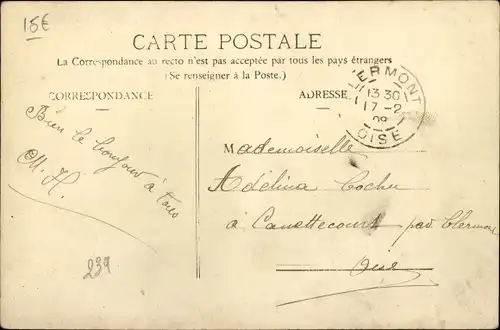 15€
CARTE POSTALE
La Correspondance au recto n'est pas acceptée par tous les pays étrangers
(Se renseigner à la Poste.)
CORRESPONDANCE
ADRESSE
CLERMONT
13 30
17-2
09
OISE
Bien le bonjour à tous
M. H.
Mademoiselle
Adélina Cochu
à Canettecourt par Clermont
Oise
239